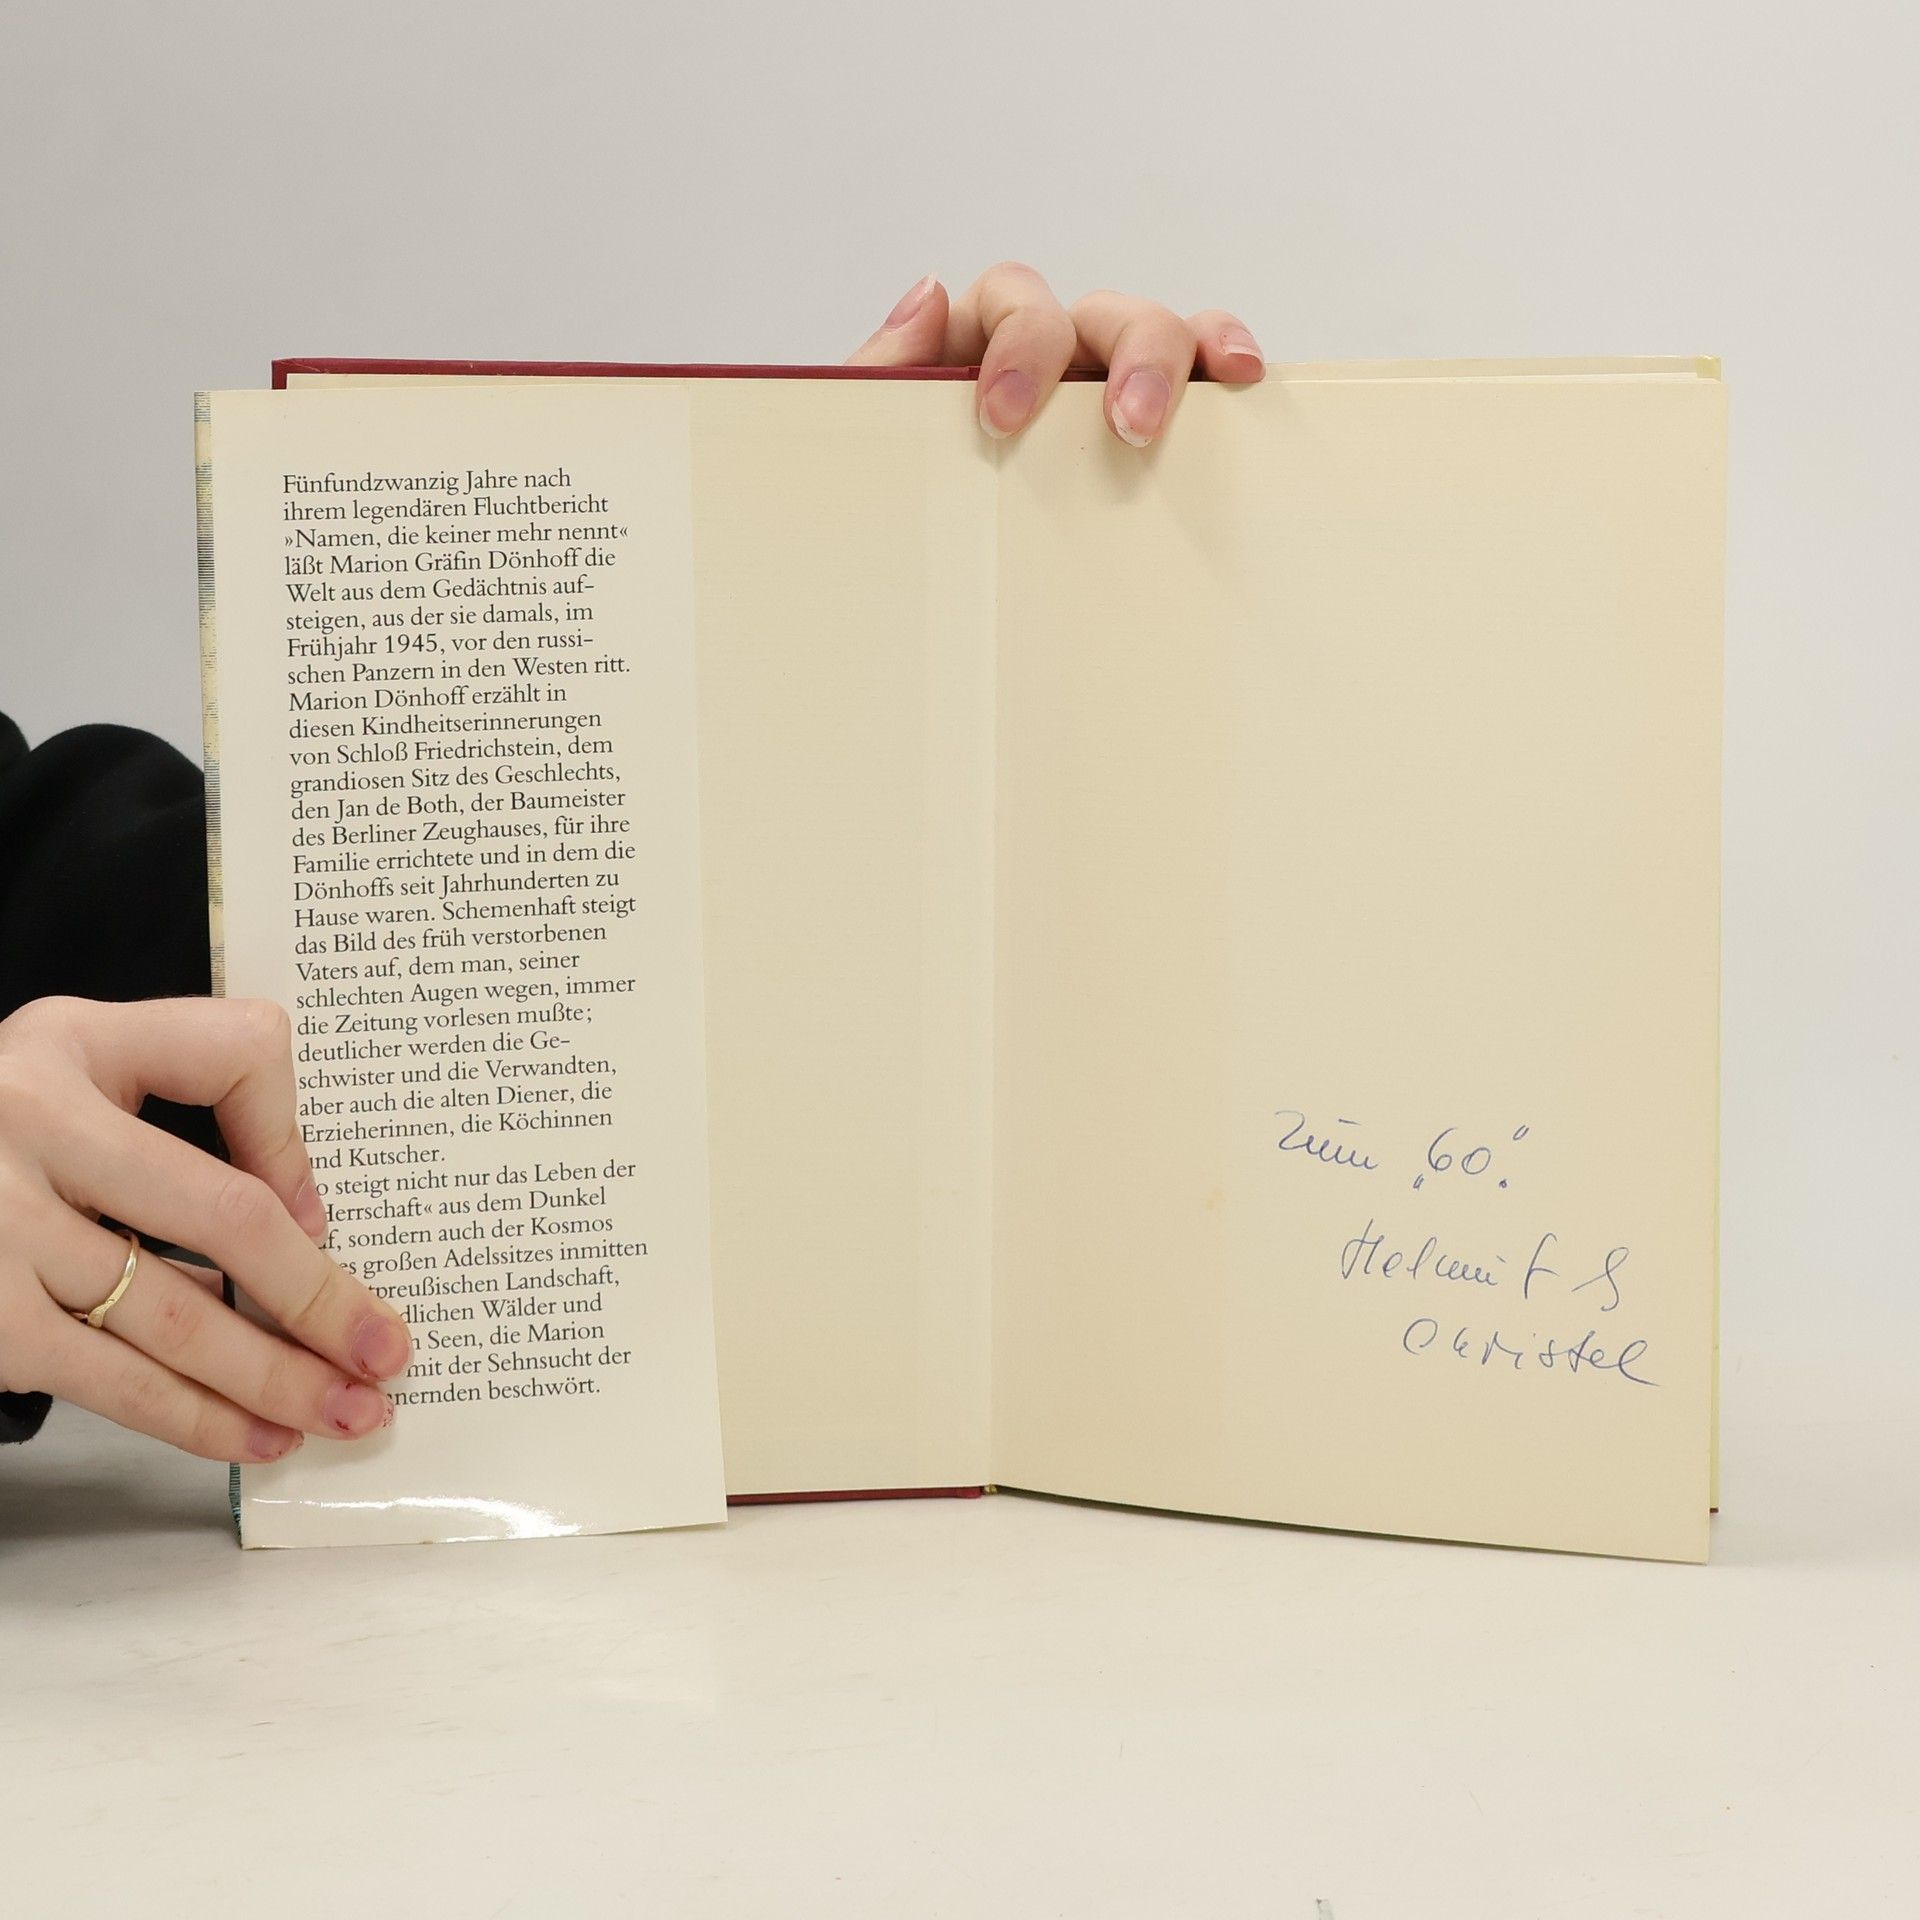 Fünfundzwanzig Jahre nach
ihrem legendären Fluchtbericht
»Namen, die keiner mehr nennt«
läßt Marion Gräfin Dönhoff die
Welt aus dem Gedächtnis auf-
steigen, aus der sie damals, im
Frühjahr 1945, vor den russi-
schen Panzern in den Westen ritt.
Marion Dönhoff erzählt in
diesen Kindheitserinnerungen
von Schloß Friedrichstein, dem
grandiosen Sitz des Geschlechts,
den Jan de Both, der Baumeister
des Berliner Zeughauses, für ihre
Familie errichtete und in dem die
Dönhoffs seit Jahrhunderten zu
Hause waren. Schemenhaft steigt
das Bild des früh verstorbenen
Vaters auf, dem man, seiner
schlechten Augen wegen, immer
die Zeitung vorlesen mußte;
deutlicher werden die Ge-
schwister und die Verwandten,
aber auch die alten Diener, die
Erzieherinnen, die Köchinnen
und Kutscher.
steigt nicht nur das Leben der
Herrschaft« aus dem Dunkel
sondern auch der Kosmos
großen Adelssitzes inmitten
Landschaft,
Wälder und
Seen, die Marion
mit der Sehnsucht der
beschwört.
Zum „60."
Helmut &
Christel